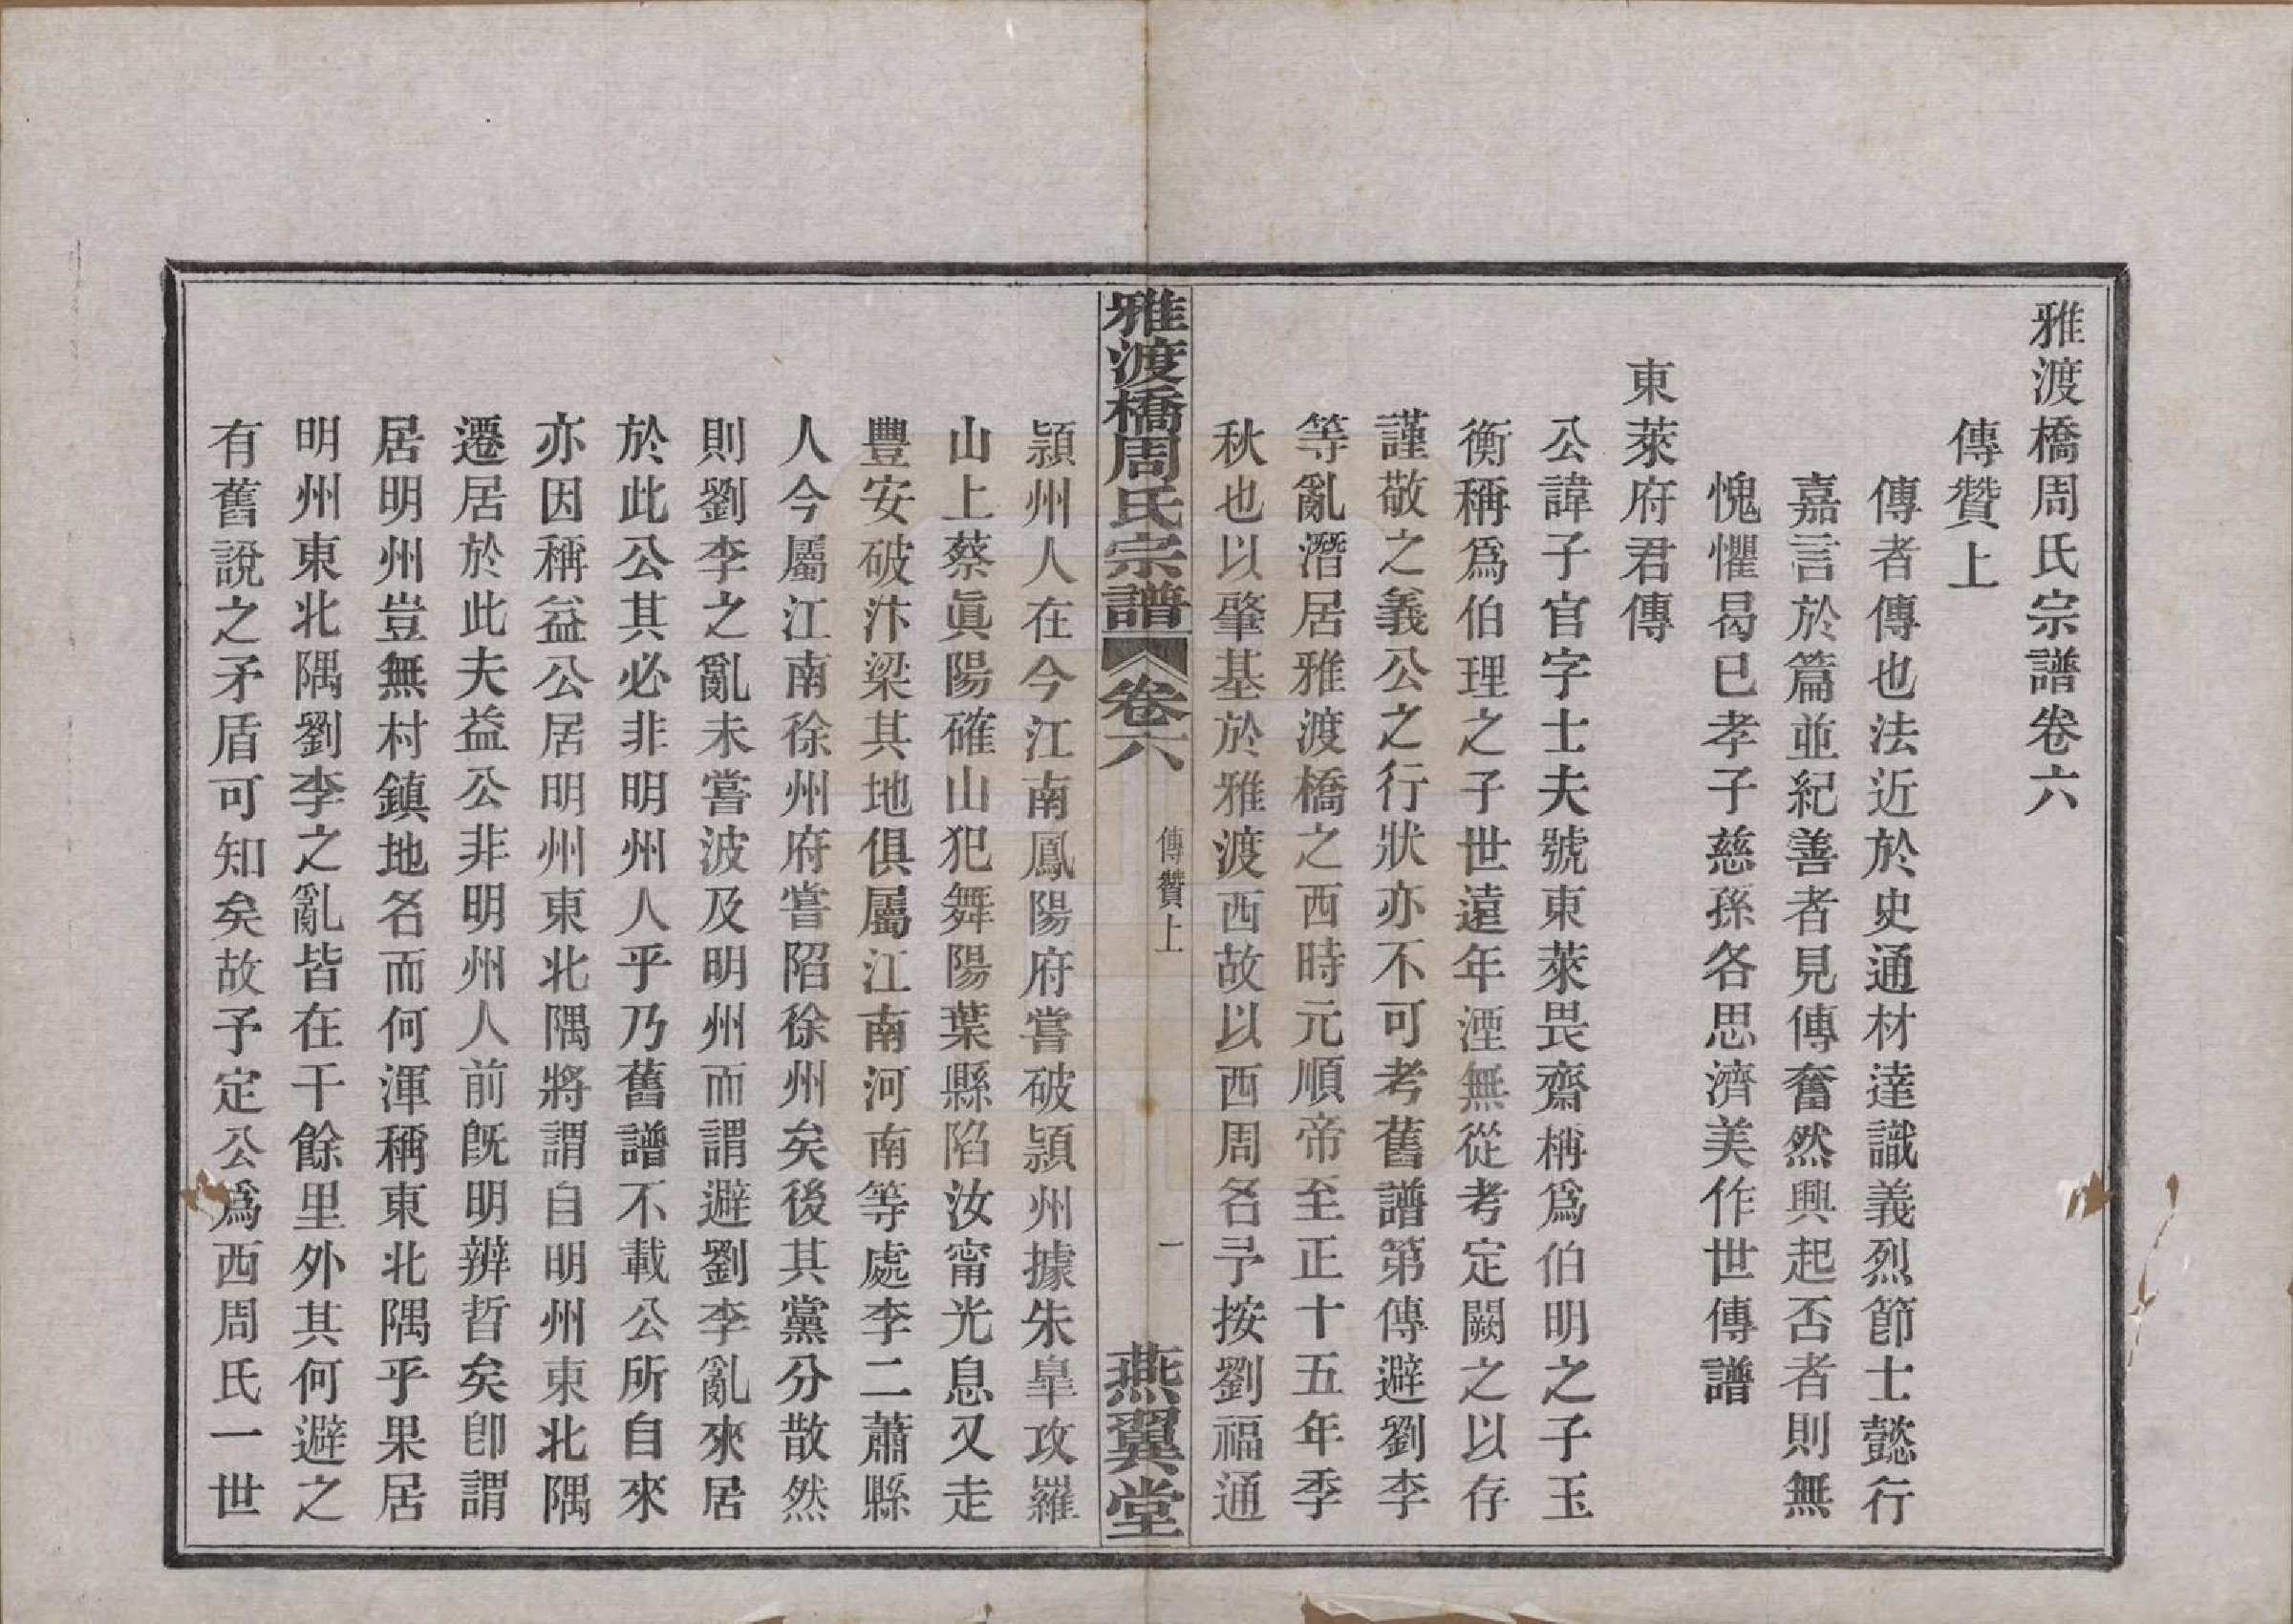 雅渡橋周氏宗譜卷六
傳贊上
傳者傳也法近於史通材達識義烈節士懿行
嘉言於篇並紀善者見傳奮然興起否者則無
愧懼曷已孝子慈孫各思濟美作世傳譜
東萊府君傳
公諱子官字士夫號東萊畏齋稱爲伯明之子玉
衡稱爲伯理之子世遠年湮無從考定闕之以存
謹敬之義公之行狀亦不可考舊譜第傳避劉李
等亂潛居雅渡橋之西時元順帝至正十五年季
秋也以肇基於雅渡西故以西周名予按劉福通
雅渡橋周氏宗譜
卷六
傳贊上
一
燕翼堂
潁州人在今江南鳳陽府嘗破潁州據朱皐攻羅
山上蔡眞陽確山犯舞陽葉縣陷汝甯光息又走
豐安破汴梁其地俱屬江南河南等處李二蕭縣
人今屬江南徐州府嘗陷徐州矣後其黨分散然
則劉李之亂未嘗波及明州而謂避劉李亂來居
於此公其必非明州人乎乃舊譜不載公所自來
亦因稱益公居明州東北隅將謂自明州東北隅
遷居於此夫益公非明州人前旣明辨晢矣卽謂
居明州豈無村鎮地名而何渾稱東北隅乎果居
明州東北隅劉李之亂皆在千餘里外其何避之
有舊說之矛盾可知矣故予定公爲西周氏一世